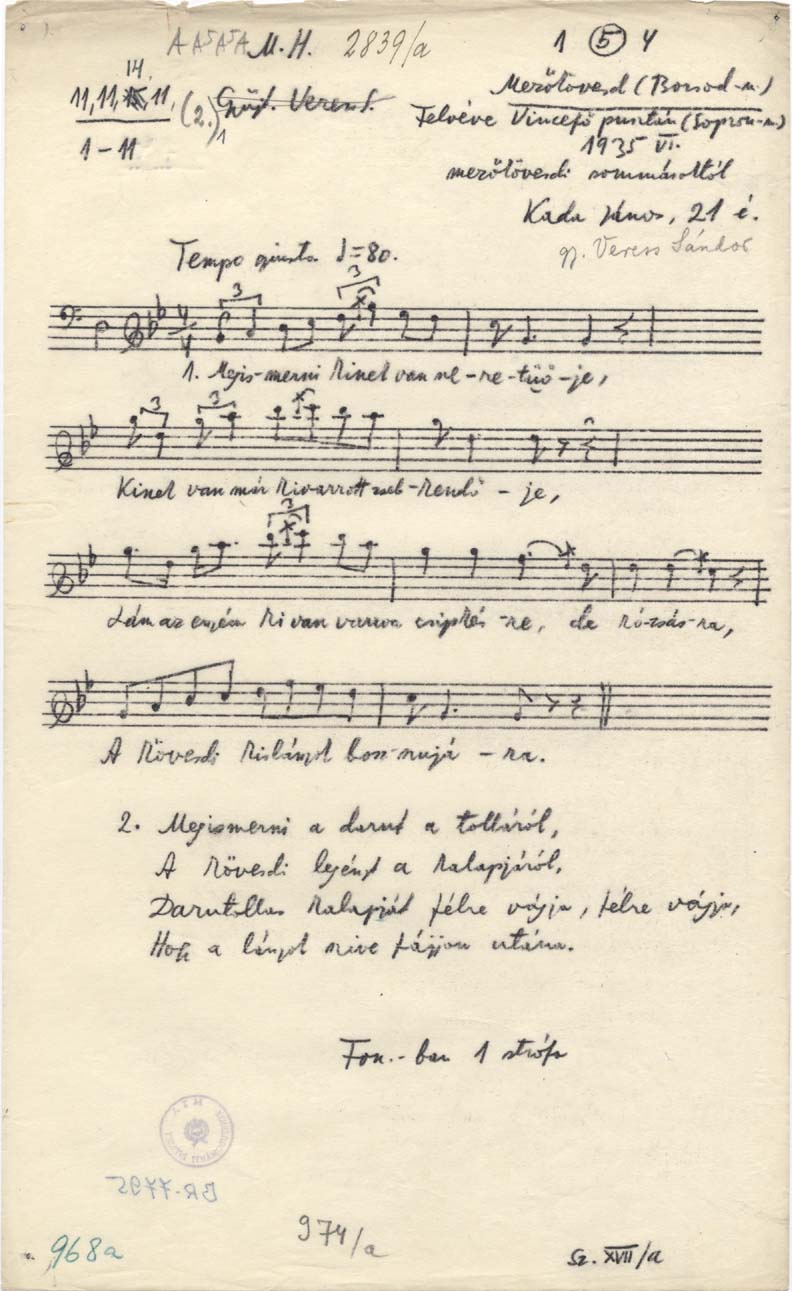 A A⁵ A⁵ A M. H. 2839/a
1 ⑤ 4
14.
11, 11, 11,
(2.)
1 – 11
Gyüjt. Veress S.
1
Mezőkövesd (Borsod-m.)
Felvéve Vincefő pusztán (Sopron-m.)
1935 VI.
mezőkövesdi sommásoktól
Kada János, 21 é.
gy. Veress Sándor
Tempo giusto ♩=80.
3 3
1. Megis-merni kinek van ne-re-tüö-je,
3 3
Kinek van már kivarrott zseb-kendő – je,
3
Lám az enyém ki van varrva csipkés-re, de ró-zsás-ra,
A kövesdi kislányok bosz-nujá – ra.
2. Megismerni a darut a tolláról,
A kövesdi legényt a kalapjáról,
Darutollas kalapját félre vágja, félre vágja,
Hogy a lányok szive fájjon utána.
Fon.-ban 1 strófa
BR-7795
968a
974/a
Sz. XVII/a